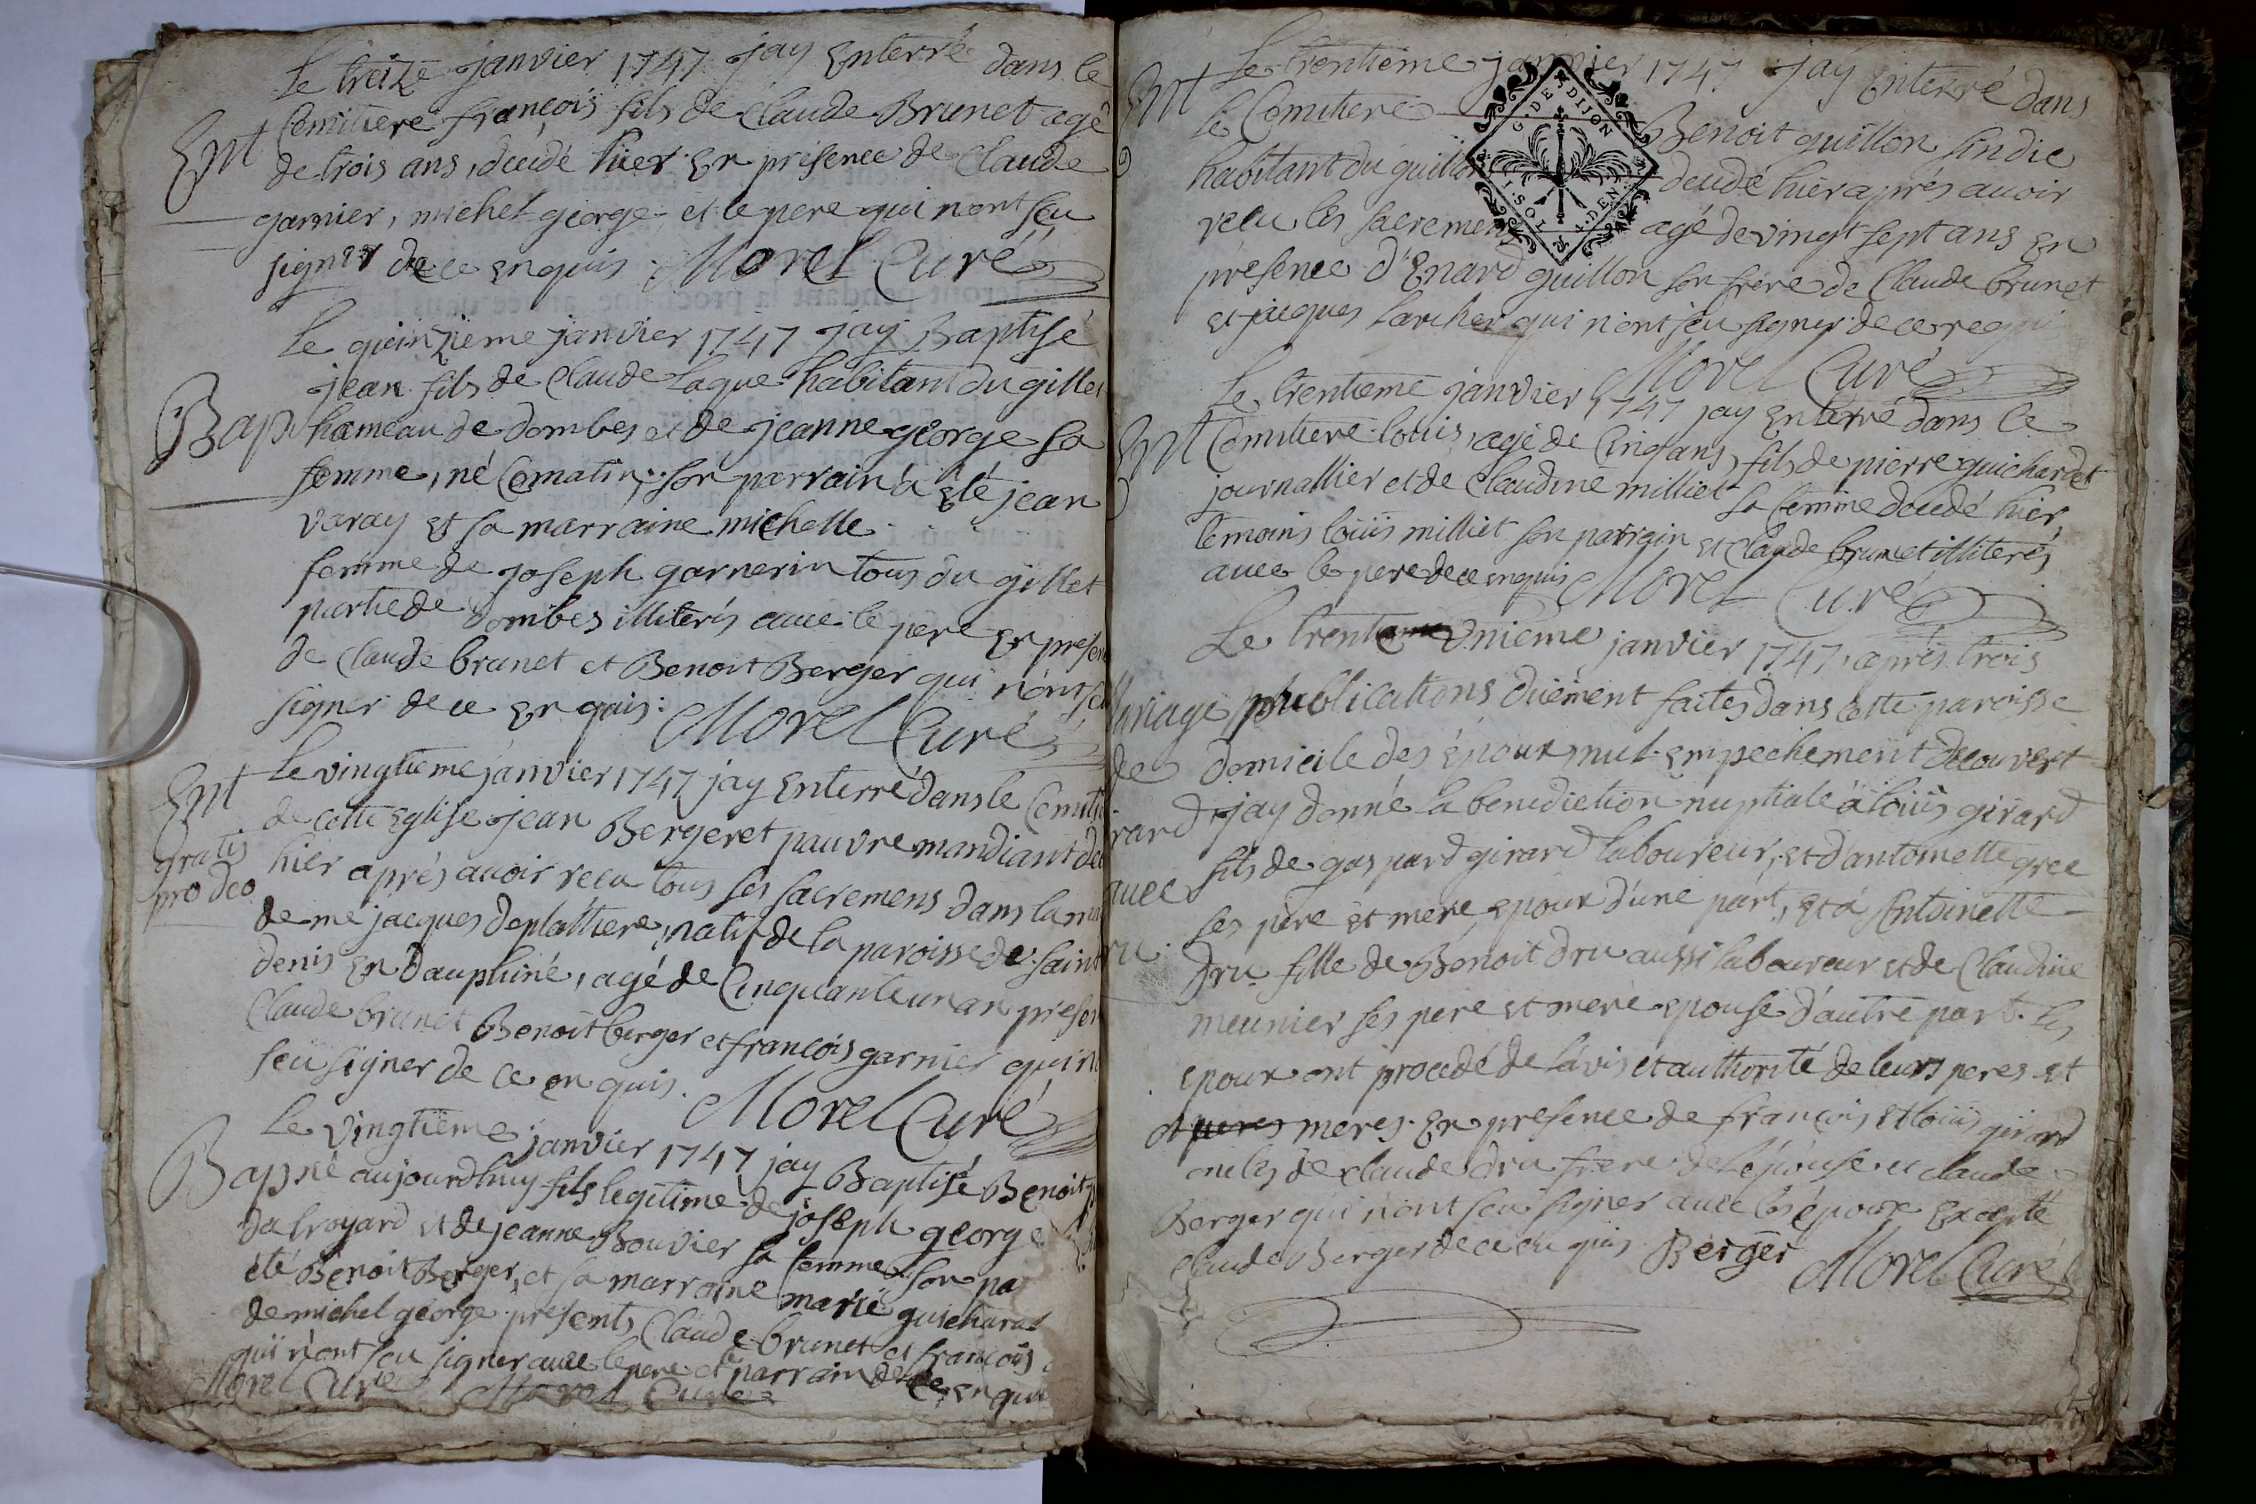 Le treize janvier 1747 jay Enterré dans le
Ent Cemitiere françois fils de Claude Brunet agé
de trois ans, decedé hier En presence de Claude
garnier, michel george, et le pere qui n'ont seu
signer de ce enquis. Morel Curé
Le quinzieme janvier 1747 jay Baptisé
jean fils de Claude Laque habitant du gillet
Bap hameau de dombes et de jeanne george sa
femme, né ce matin, son parrain a été jean
varay et sa marraine michelle
femme de joseph garnerin tous du gillet
partie de dombes illiterés avec le pere En presen
de Claude brunet et Benoit Berger qui n'ont seu
signer de ce Enquis: Morel Curé
Ent Le vingtieme janvier 1747 jay Enterré dans le Cemiti
gratis de cette Eglise jean Bergeret pauvre mandiant de
pro deo hier aprés avoir recu tous ses sacremens dans la
de me jacques deplattiere, natif de la paroisse de saint
denis En Dauphiné, agé de Cinquante un an presen
Claude brunet Benoit berger et françois garnier qui n
seu signer de ce enquis. Morel Curé
Le vingtieme janvier 1747 jay Baptisé Benoit
Bap né aujourdhuy fils legitime de joseph george
de troyard et de jeanne Bouvier sa femme son pa
été Benoit Berger, et sa marraine marie guichard
de michel george, presents Claude brunet et françois
qui n'ont seu signer avec le pere et le parrain de ce enqui
Morel Curé Morel Curé
Ent Le trentieme janvier 1747 jay Enterré dans
le Cemitiere Benoit guillon sindic
G. DE DIJON
I. SOL 4. DEN.
habitant du guillon decedé hier aprés avoir
recu les sacremens agé de vingt sept ans en
presence d'Enard guillon son frere de Claude brunet
et jacques Larcher qui n'ont seu signer de ce requi
Morel Curé
Le trentieme janvier 1747 jay Enterré dans le
Ent Cemitiere louis, agé de Cinq ans, fils de pierre guichardet
journallier et de Claudine milliet sa femme decedé hier,
temoins louis milliet son parrain et Claude brunet illiterés
avec le pere de ce enquis Morel Curé
Le trente unieme janvier 1747, aprés trois
riage publications duement faites dans cette paroisse
de domicile des époux, nul empechement decouvert
rard jay donné la benediction nuptiale a louis girard
fils de gaspard girard laboureur, et d'antoinette gree
avec ses pere et mere, epoux d'une part, et a Antoinette
ru. Dru fille de Benoit Dru aussi laboureur et de Claudine
meunier ses pere et mere epouse d'autre part. les
epoux ont procedé de lavis et authorité de leurs peres et
meres. En presence de françois et louis girard
oncles de claude dru frere de l'épouse et claude
Berger qui n'ont seu signer avec les époux Excepté
claude Berger de ce enquis. Berger Morel Curé